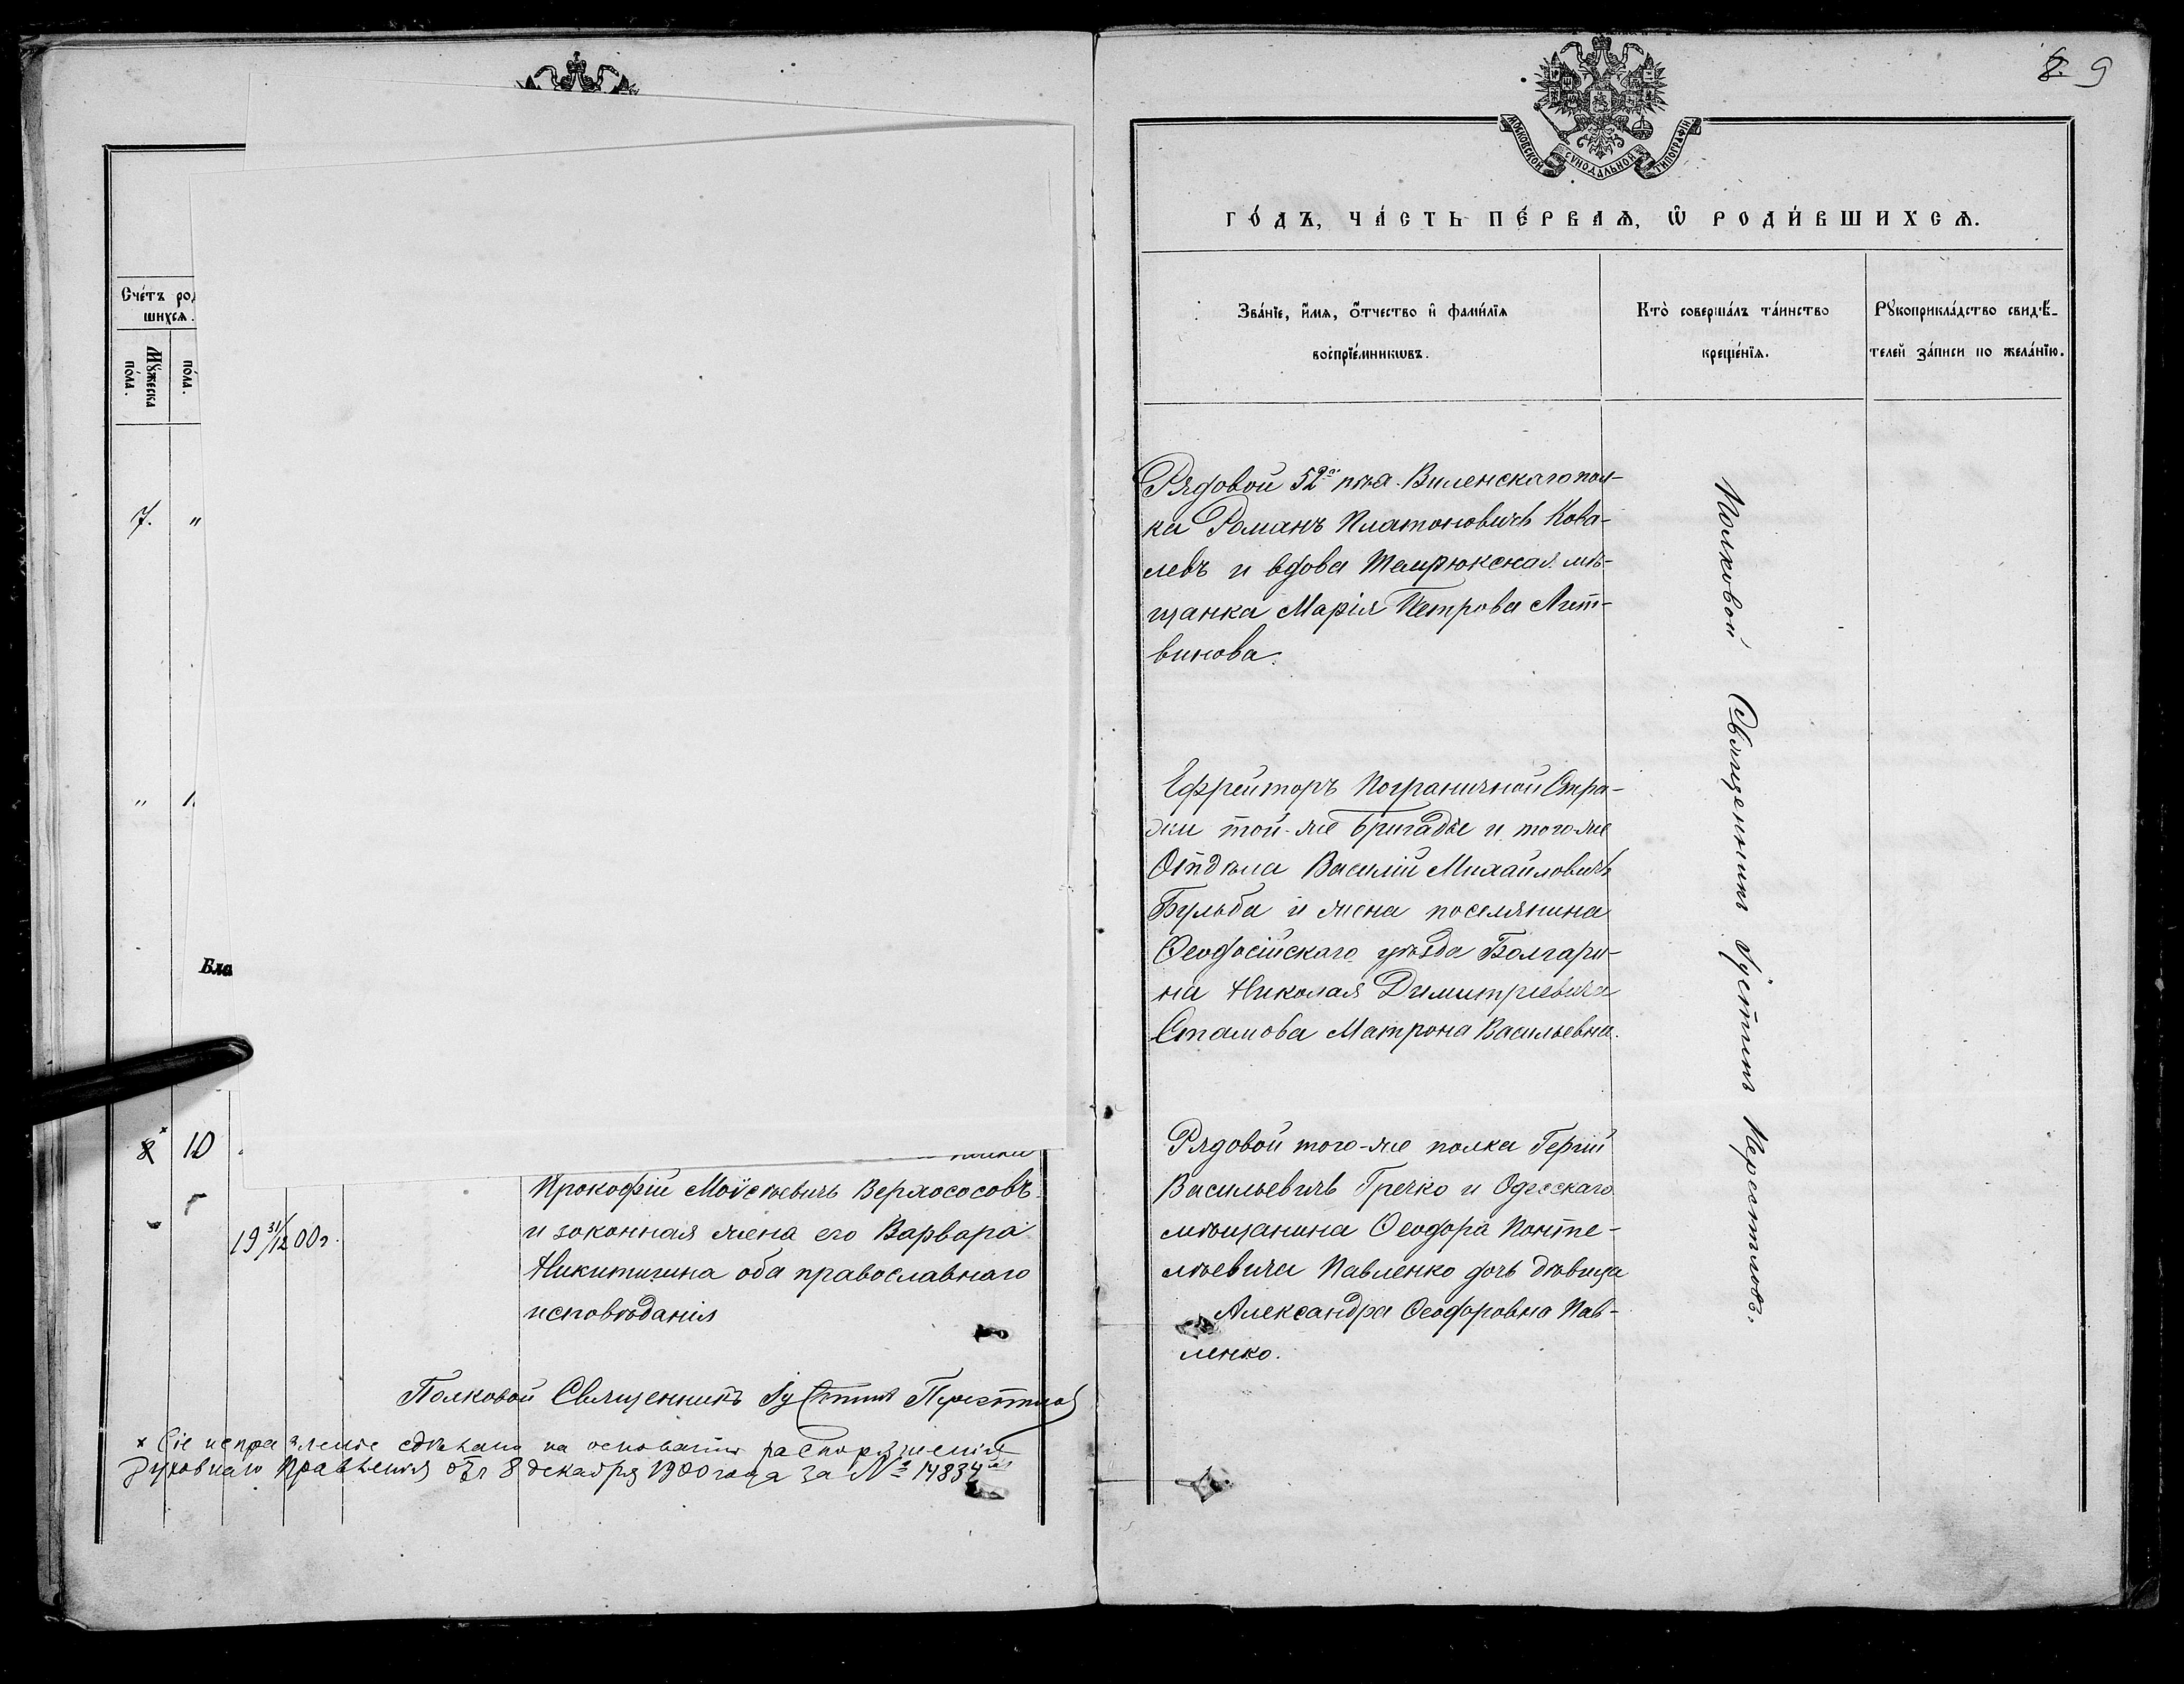 Счéтъ род
шихсѧ.
Мꙋжеска
пóла.
пóла.
7. "
" 1.
Бла
8 × 10
Прокофій Моисѣевичъ Верхососовъ
и законная жена его Варвара
19 31/12 00 г.
Никитична оба православнаго
исповѣданія
Полковой Священникъ Іустинъ
× Сіе исправленіе сдѣлано на основаніи распоряженія
Духовнаго Правленія отъ 8 декабря 1900 года за № 14834
8. 9
МОСКОВСКОЙ СѴНОДАЛЬНОЙ ТИПОГРАФІИ
ГÓДЪ, ЧÁСТЬ ПÉРВАѦ, Ѡ РОДИ́ВШИХСѦ.
Звáнїе, и́мѧ, ѻ́тчество и҆ фами́лїѧ
воспрїéмникѡвъ.
Ктò совершáлъ тáинство
крещéнїѧ.
Рꙋкоприклáдство свидѣ-
телей зáписи по желáнїю.
Рядовой 52го пѣх. Виленскаго пол-
ка Романъ Платоновичъ Кова-
левъ и вдова Темрюкская мѣ-
щанка Марія Петрова Лит-
винова.
Ефрейторъ Пограничной Стра-
жи той-же бригады и того-же
Отдѣла Василій Михайловичъ
Бульба и жена поселянина
Ѳеодосійскаго уѣзда Болгари-
на Николая Димитріевича
Стамова Матрона Васильевна.
Рядовой того-же полка
Васильевичъ Гречко и Одесскаго
мѣщанина Ѳеодора Панте-
лѣевича Павленко дочь дѣвица
Александра Ѳеодоровна Пав-
ленко.
Полковой Священникъ Іустинъ